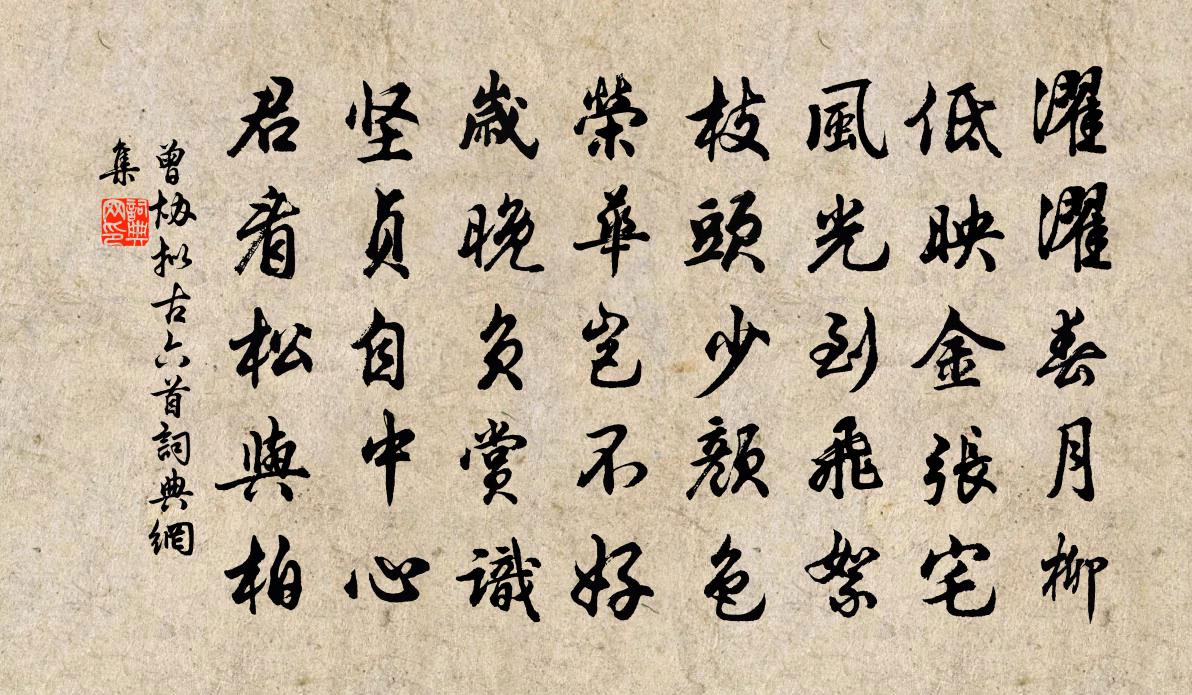 濯濯春月柳
低映金張宅
風光到飛絮
枝頭少顏色
榮華豈不好
歲晚負賞識
坚貞自中心
君看松與柏
曾協拟古六首詞典網
集
詞典
网印